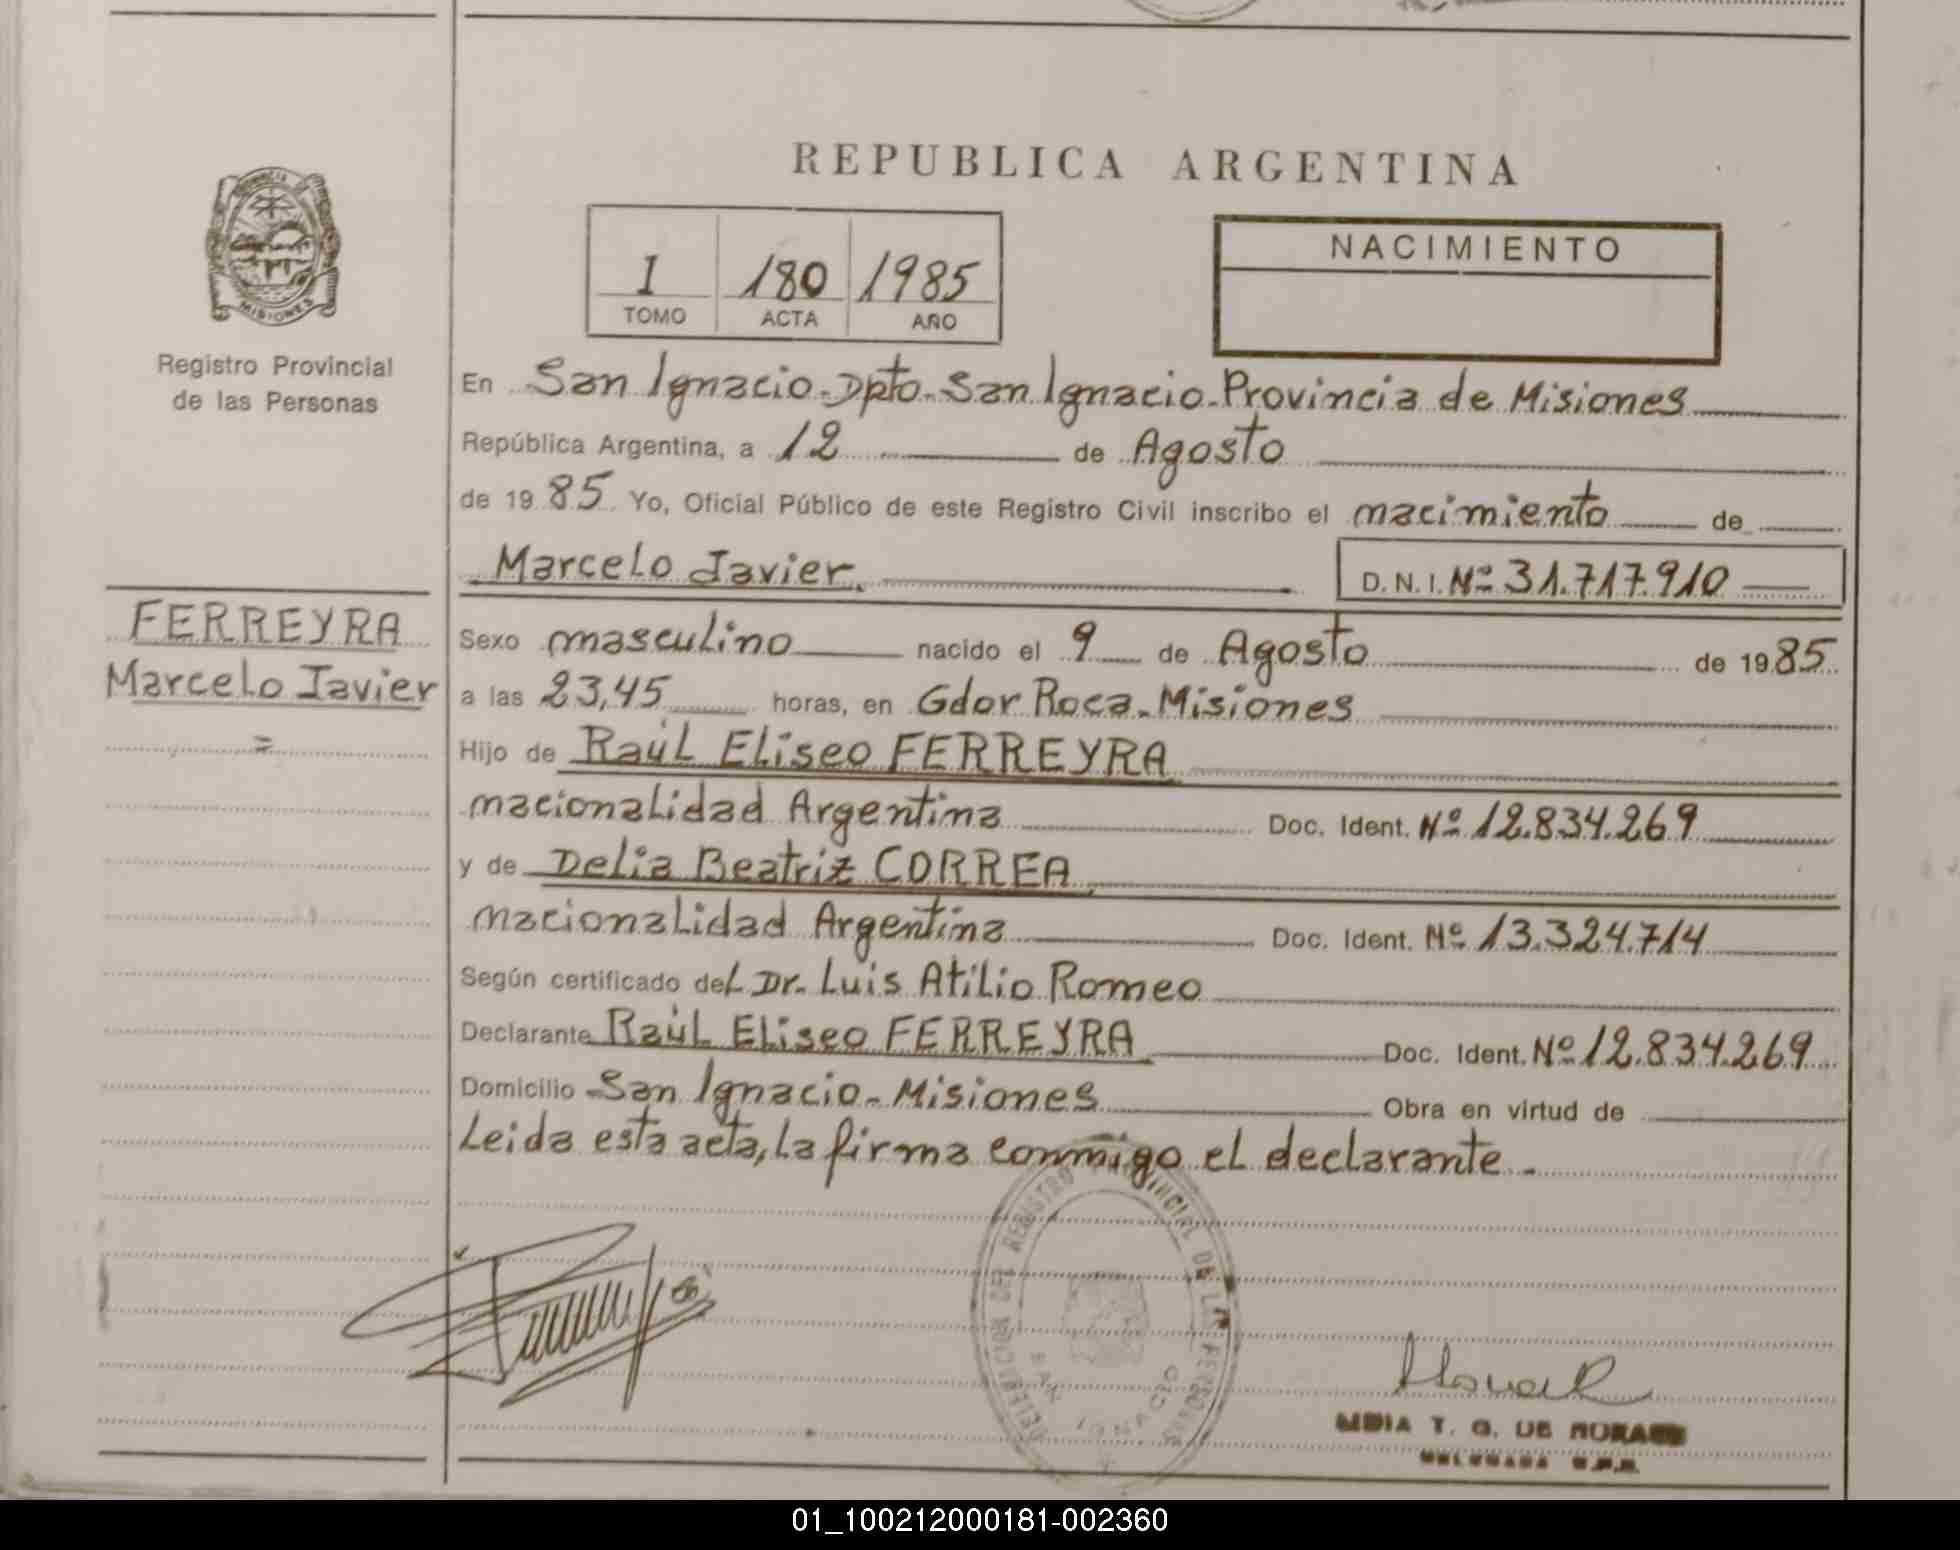 REPUBLICA ARGENTINA
MISIONES
Registro Provincial
de las Personas
I 180 1985
TOMO ACTA AÑO
NACIMIENTO
En San Ignacio-Dpto-San Ignacio-Provincia de Misiones
República Argentina, a 12 de Agosto
de 19 85 Yo, Oficial Público de este Registro Civil inscribo el nacimiento de
Marcelo Javier. D.N.I. Nº 31.717.910
FERREYRA
Marcelo Javier
=
Sexo masculino nacido el 9 de Agosto de 1985
a las 23,45 horas, en Gdor Roca-Misiones
Hijo de Raúl Eliseo FERREYRA
nacionalidad Argentina Doc. Ident. Nº 12.834.269
y de Delia Beatriz CORREA,
nacionalidad Argentina Doc. Ident. Nº 13.324.714
Según certificado del Dr. Luis Atilio Romeo
Declarante Raúl Eliseo FERREYRA Doc. Ident. Nº 12.834.269
Domicilio San Ignacio-Misiones Obra en virtud de
Leida esta acta, la firma conmigo el declarante.
DELEGACION DEL REGISTRO PROVINCIAL DE LAS PERSONAS
SAN IGNACIO
T. G. DE MORAES
01_100212000181-002360